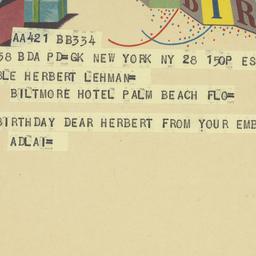 B I R
AA421 BB334
58 BDA PD=GK NEW YORK NY 28 150P ES
BLE HERBERT LEHMAN=
BILTMORE HOTEL PALM BEACH FLO=
BIRTHDAY DEAR HERBERT FROM YOUR EMB
ADLAI=